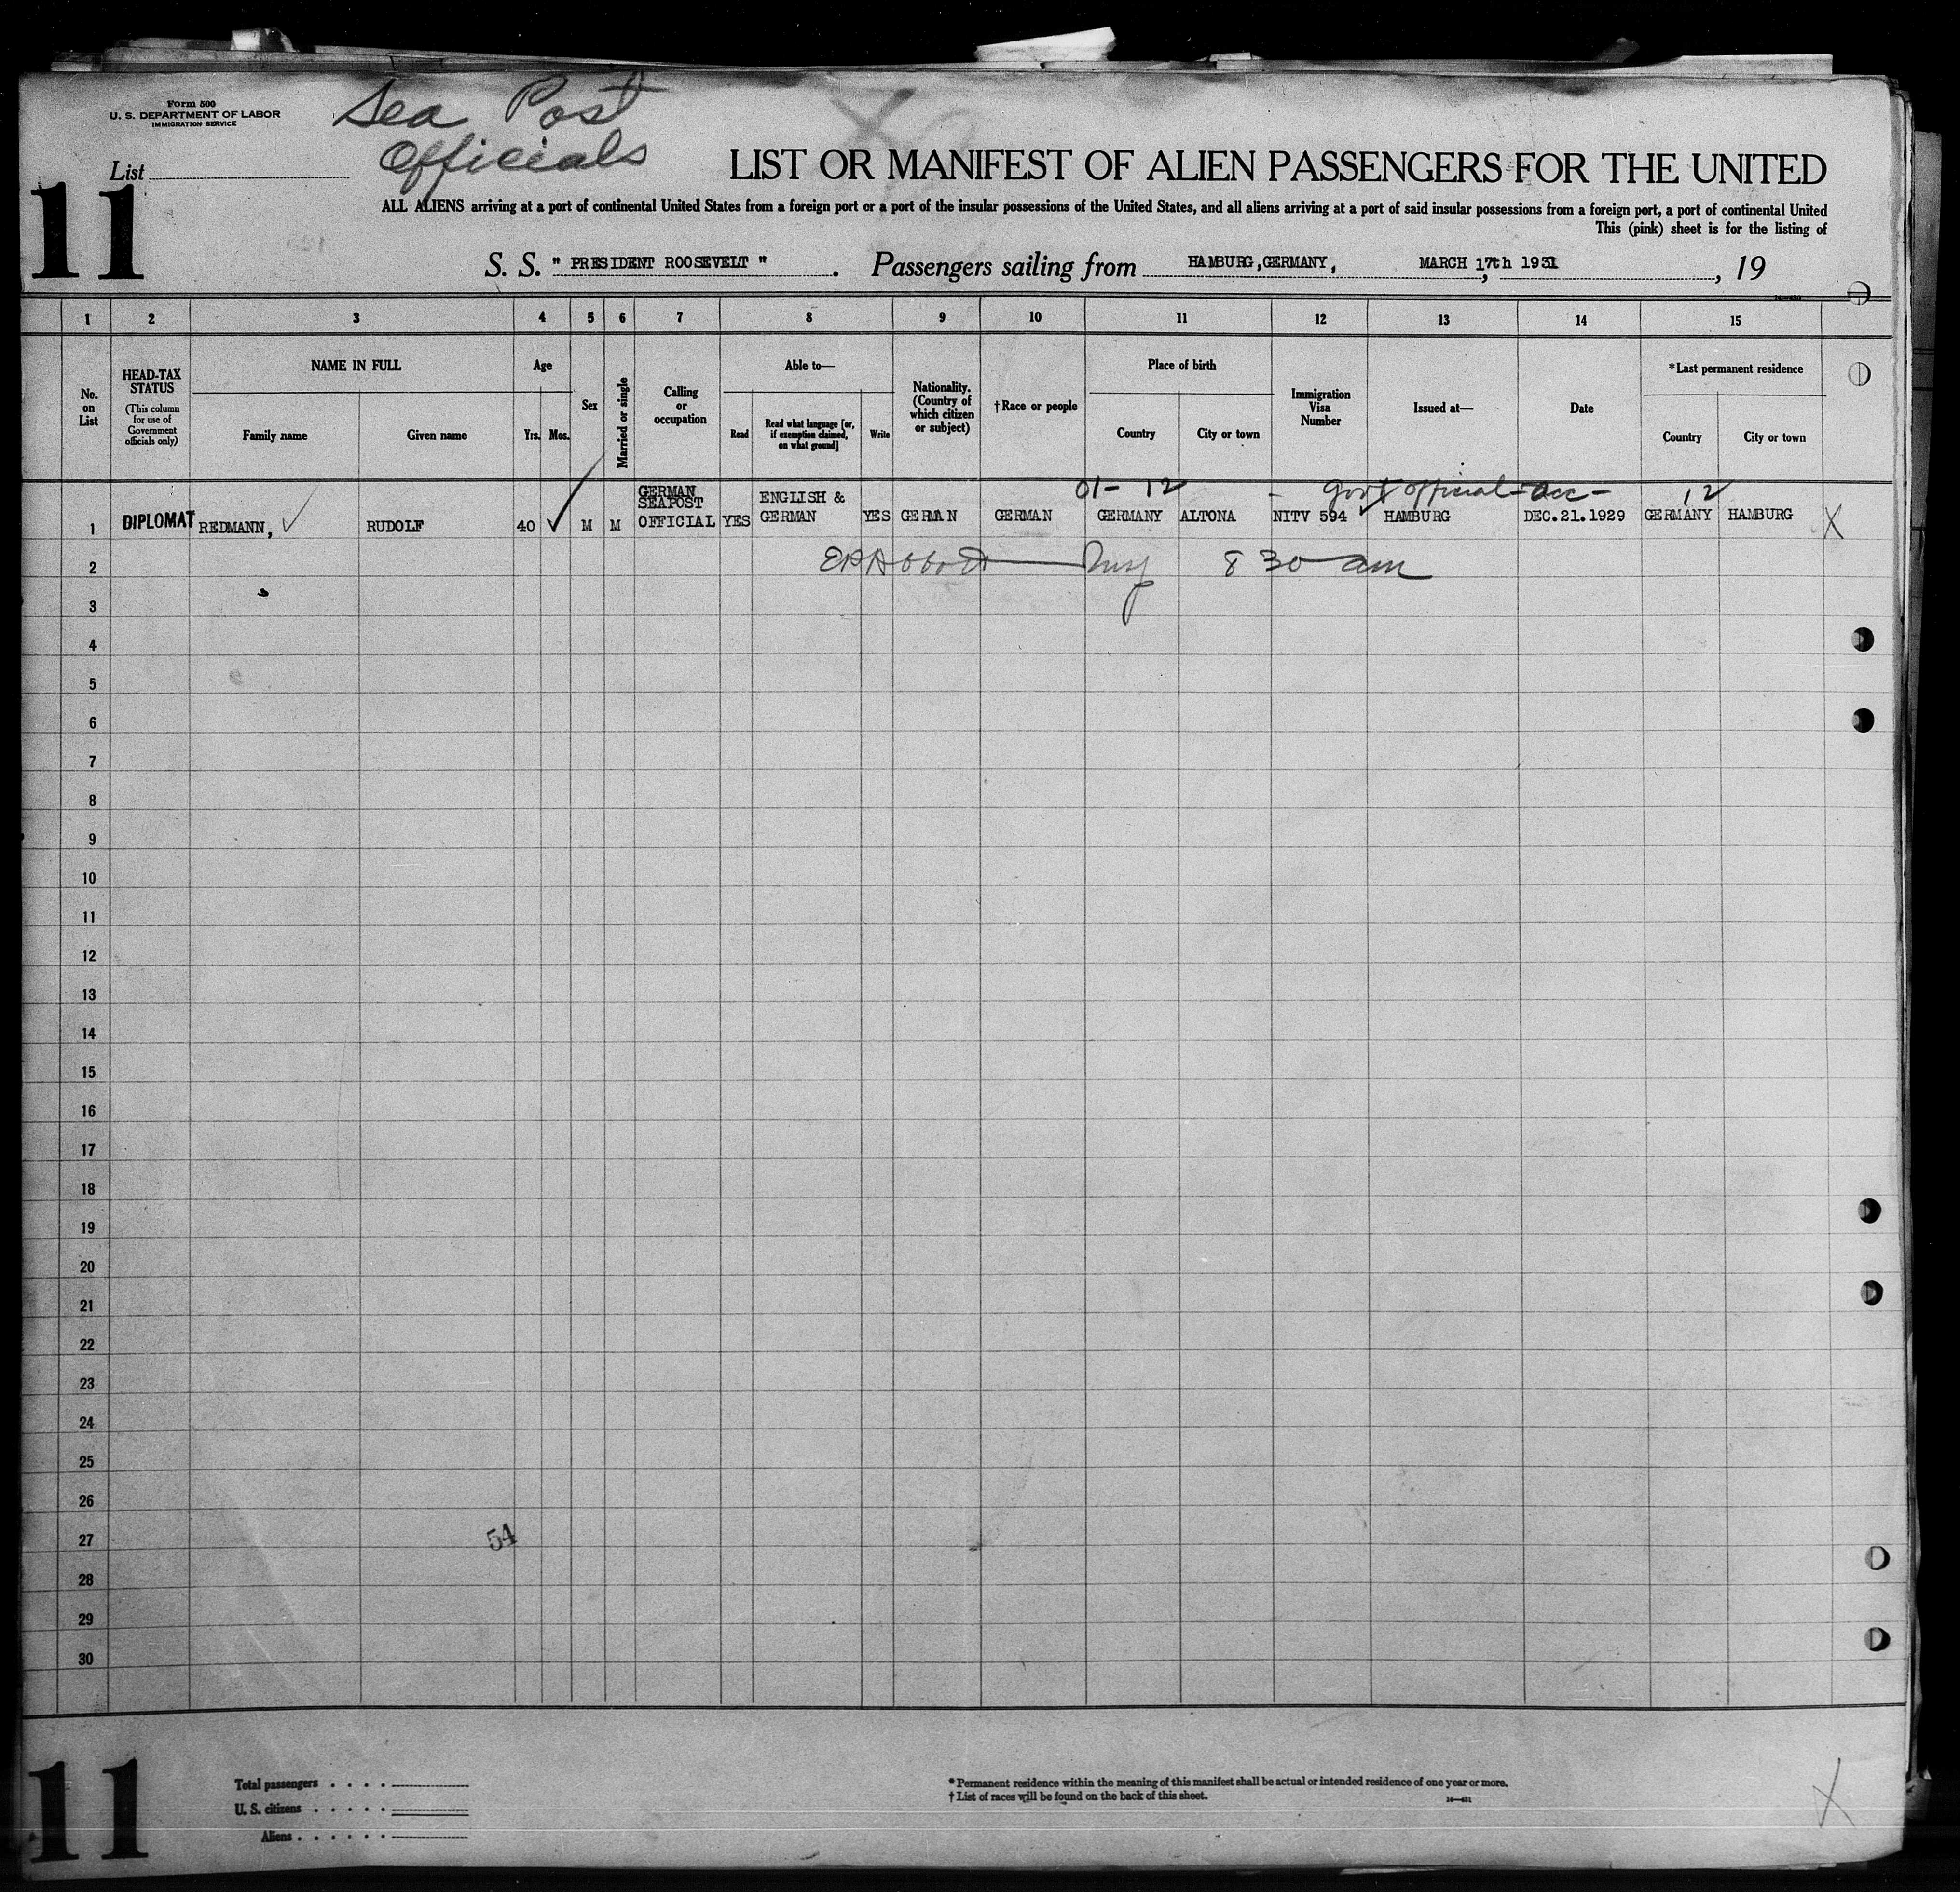 Form 500
U. S. DEPARTMENT OF LABOR
IMMIGRATION SERVICE
Sea Post
Officials
List
11
LIST OR MANIFEST OF ALIEN PASSENGERS FOR THE UNITED
ALL ALIENS arriving at a port of continental United States from a foreign port or a port of the insular possessions of the United States, and all aliens arriving at a port of said insular possessions from a foreign port, a port of continental United
This (pink) sheet is for the listing of
S. S. " PRESIDENT ROOSEVELT ". Passengers sailing from HAMBURG, GERMANY, MARCH 17th 1931, 19
1 2 3 4 5 6 7 8 9 10 11 12 13 14 15
No. on List
HEAD-TAX STATUS (This column for use of Government officials only)
NAME IN FULL
Family name Given name
Age
Yrs. Mos.
Sex
Married or single
Calling or occupation
Able to—
Read Read what language [or, if exemption claimed, on what ground] Write
Nationality. (Country of which citizen or subject)
†Race or people
Place of birth
Country City or town
Immigration Visa Number
Issued at—
Date
*Last permanent residence
Country City or town
01- 12 - Govt official-acc- 12
1 DIPLOMAT REDMANN, RUDOLF 40 M M GERMAN SEAPOST OFFICIAL YES ENGLISH & GERMAN YES GERMAN GERMAN GERMANY ALTONA NITV 594 HAMBURG DEC.21.1929 GERMANY HAMBURG X
2 8 30 am
3
4
5
6
7
8
9
10
11
12
13
14
15
16
17
18
19
20
21
22
23
24
25
26
27
54
28
29
30
11
Total passengers . . . .
U. S. citizens . . . . .
Aliens . . . . . .
* Permanent residence within the meaning of this manifest shall be actual or intended residence of one year or more.
† List of races will be found on the back of this sheet.
X